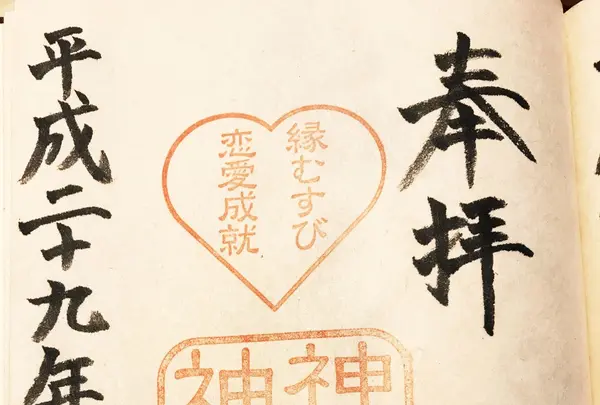 奉拝
縁むすび
恋愛成就
神
神
平成二十九年